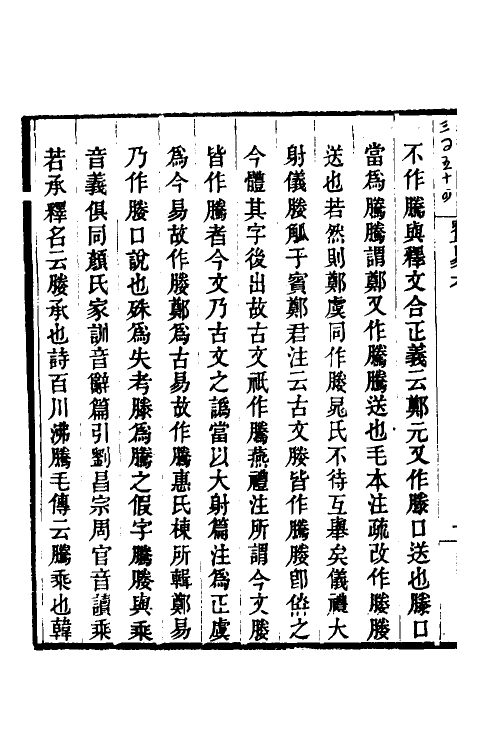 不作騰與釋文合正義云鄭元又作媵口送也媵口
當爲騰騰謂鄭又作騰騰送也毛本注疏改作媵媵
送也若然則鄭虞同作媵晁氏不待互舉矣儀禮大
射儀媵觚于賓鄭君注云古文媵皆作騰媵卽倂之
今體其字後出故古文祇作騰燕禮注所謂今文媵
皆作騰者今文乃古文之譌當以大射篇注爲正虞
爲今易故作媵鄭爲古易故作騰惠氏棟所輯鄭易
乃作媵口說也殊爲失考滕爲騰之假字騰媵與乘
音義俱同顏氏家訓音辭篇引劉昌宗周官音讀乘
若承釋名云媵承也詩百川沸騰毛傳云騰乘也韓